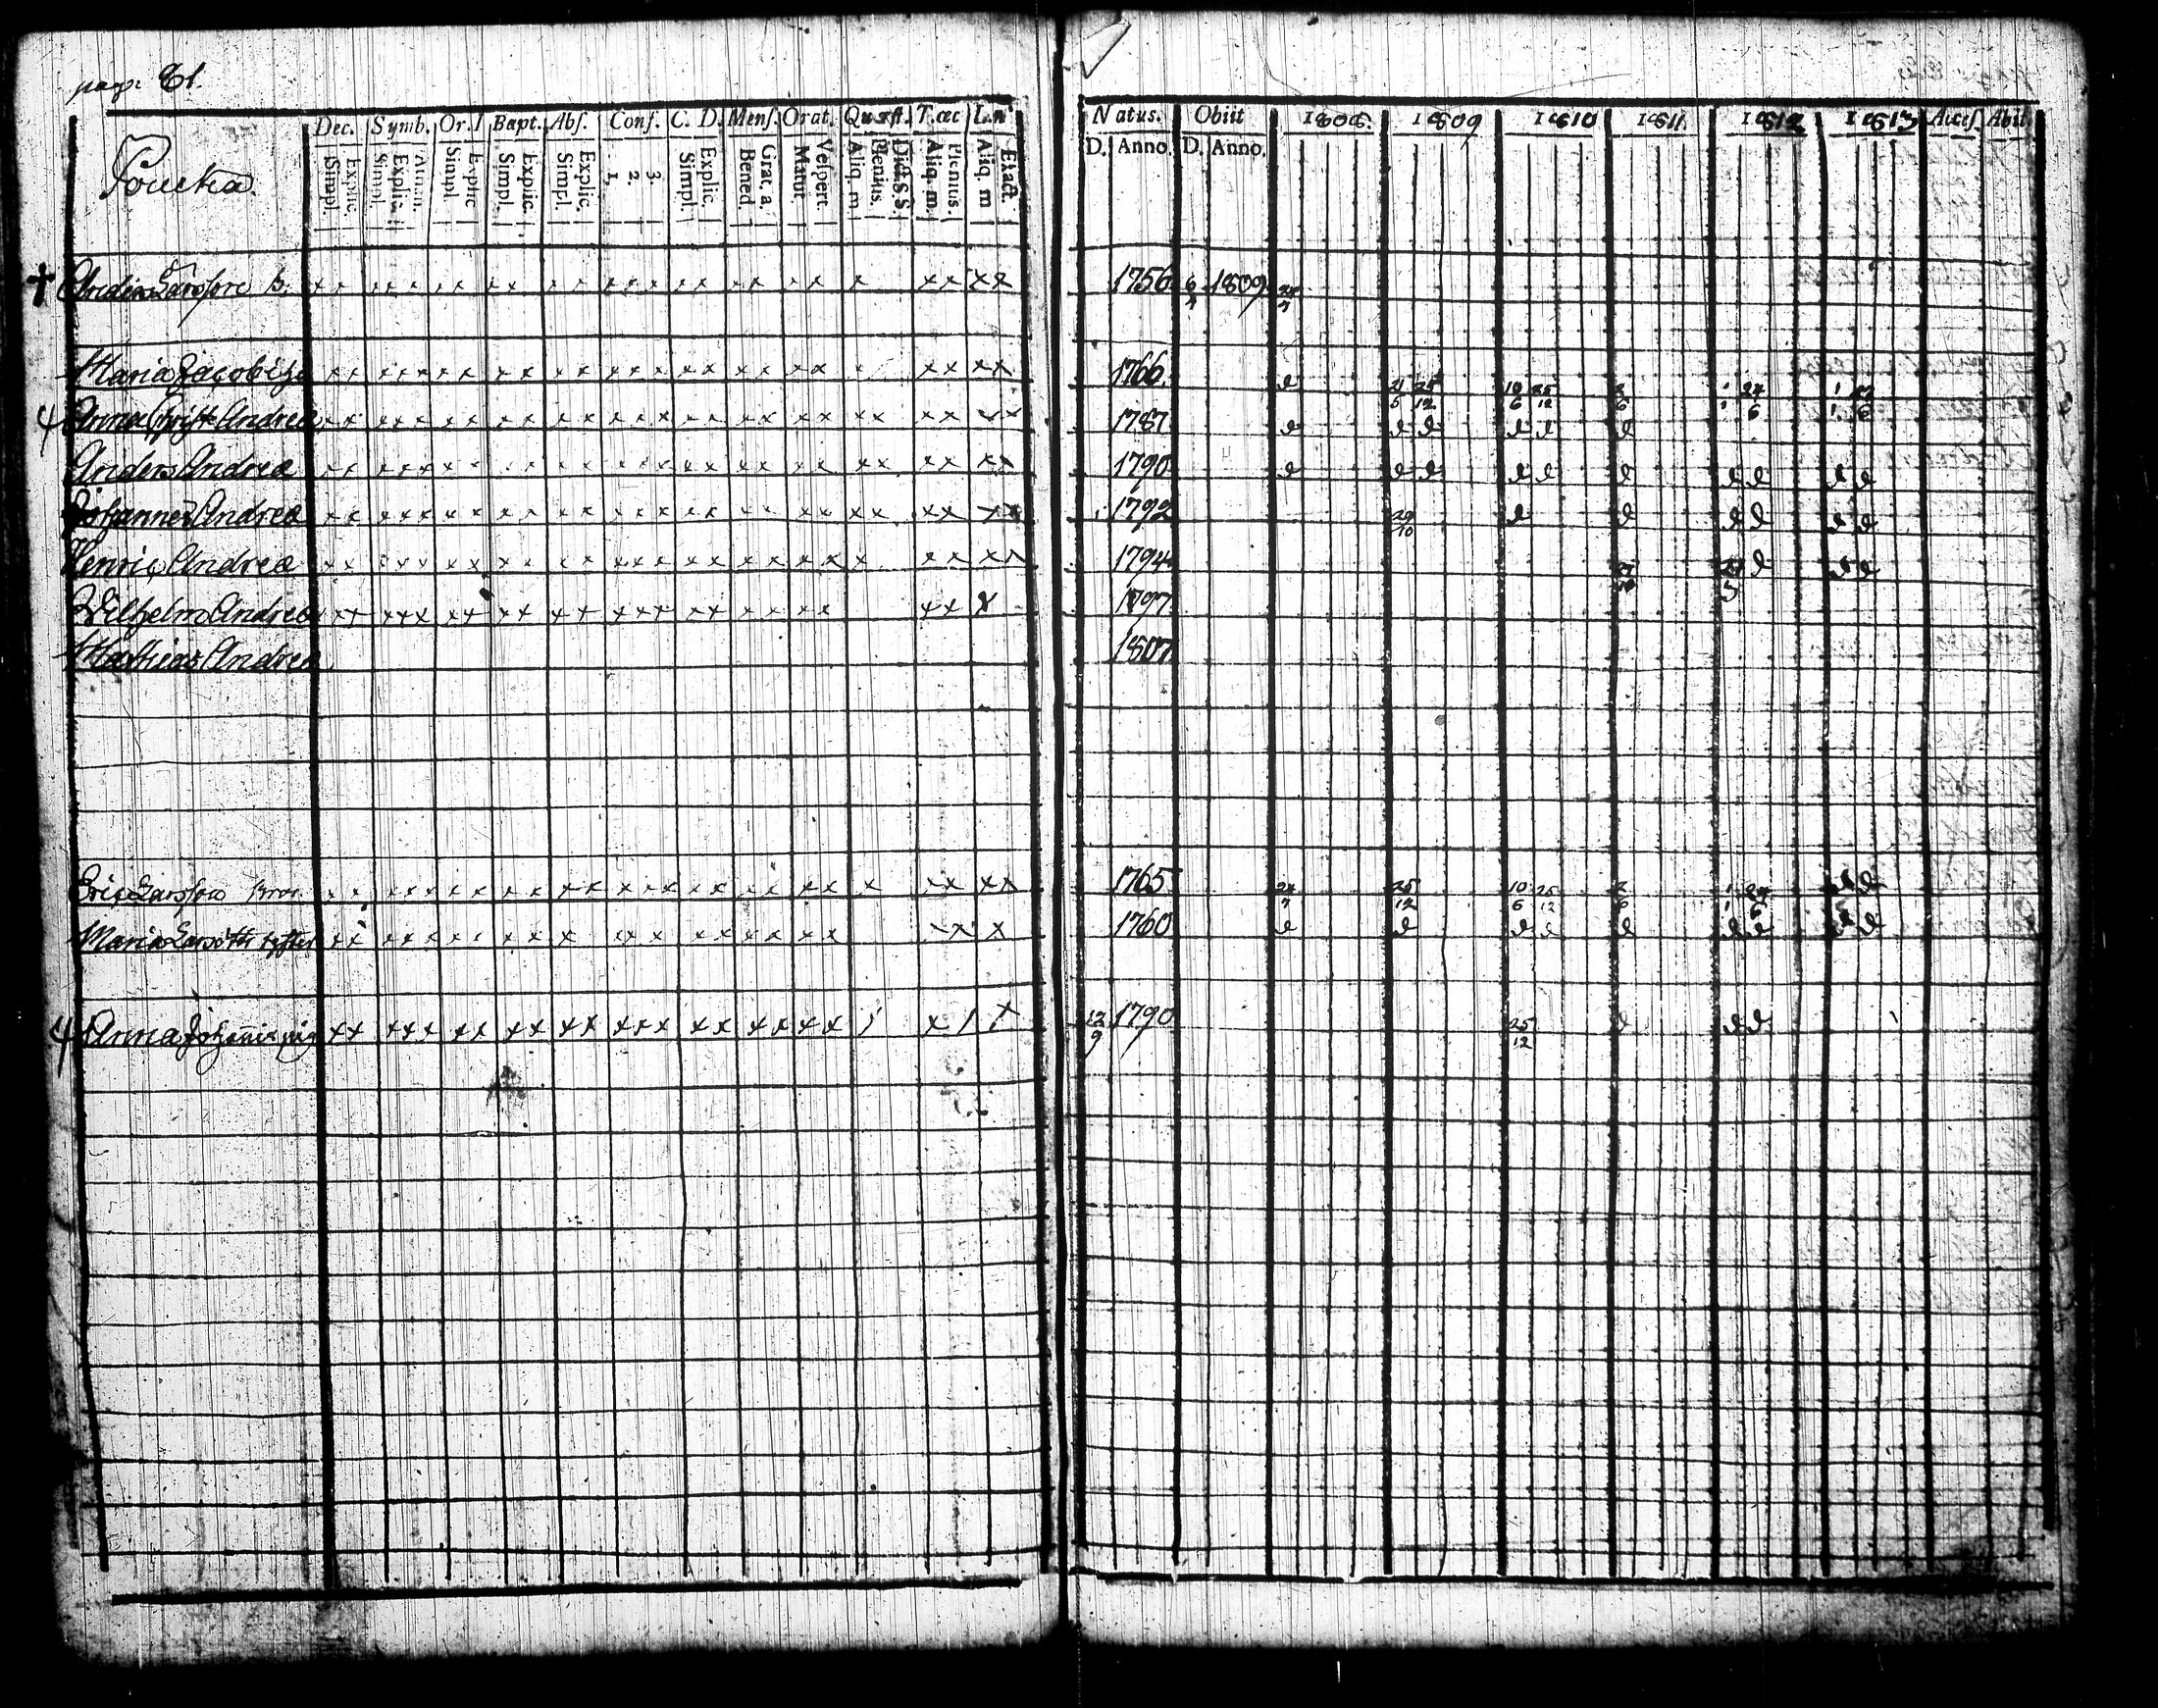 pag: 81.
Dec. Symb. Or. I Bapt. Abſ. Conſ. C. D. Menſ. Orat. Quæſt. T.œc L.n
Natus. Obiit 1808. 1809 1810 1811. 1812 1813 Acceſ. Abit.
Simpl. Explic. Simpl. Explic. Simpl. Explic Simpl. Explic. Simpl. Explic. 1. 2. 3. Simpl. Explic. Bened. Grat. a. Matut. Veſpert. Aliq. m Plenius. Dict. S. S. Aliq. m. Plenius. Aliq. m Exact.
D. Anno. D. Anno.
Anders Larsson b. x x x x x x x x x x x x x x x x x x x x x x x x x 1756 6/4 1809 24/7
Maria Jacobi x x x x x x x x x x x x x x x x x x x x x x x x 1766. d 21/5 25/12 10/6 25/12 2/6 1/1 24/6 1/1
4 Anna Andreæ x x x x x x x x x x x x x x x x x x x x x x x x x x 1787 d d d d d d
Anders Andreæ x x x x x x x x x x x x x x x x x x x x x x x x x x 1790 d d d d d d d d d d
Johannes Andreæ x x x x x x x x x x x x x x x x x x x x x x x x x x 1792 29/10 d d d d d d
Henric Andreæ x x x x x x x x x x x x x x x x x x x x x x x x x 1794 d d d
Wilhelm Andreæ x x x x x x x x x x x x x x x x x x x x x x x 1797
Mathias Andreæ 1807
Eric Larsson bror x x x x x x x x x x x x x x x x x x x x x x x x x 1765 24/7 25/12 10/6 25/12 2/6 1/1 24/6 d d
Maria Larsdotter syster x x x x x x x x x x x x x x x x x x x x x x 1760 d d d d d d d d d
4 Anna pig x x x x x x x x x x x x x x x x x x x x / x / x 12/9 1790 25/12 d d d